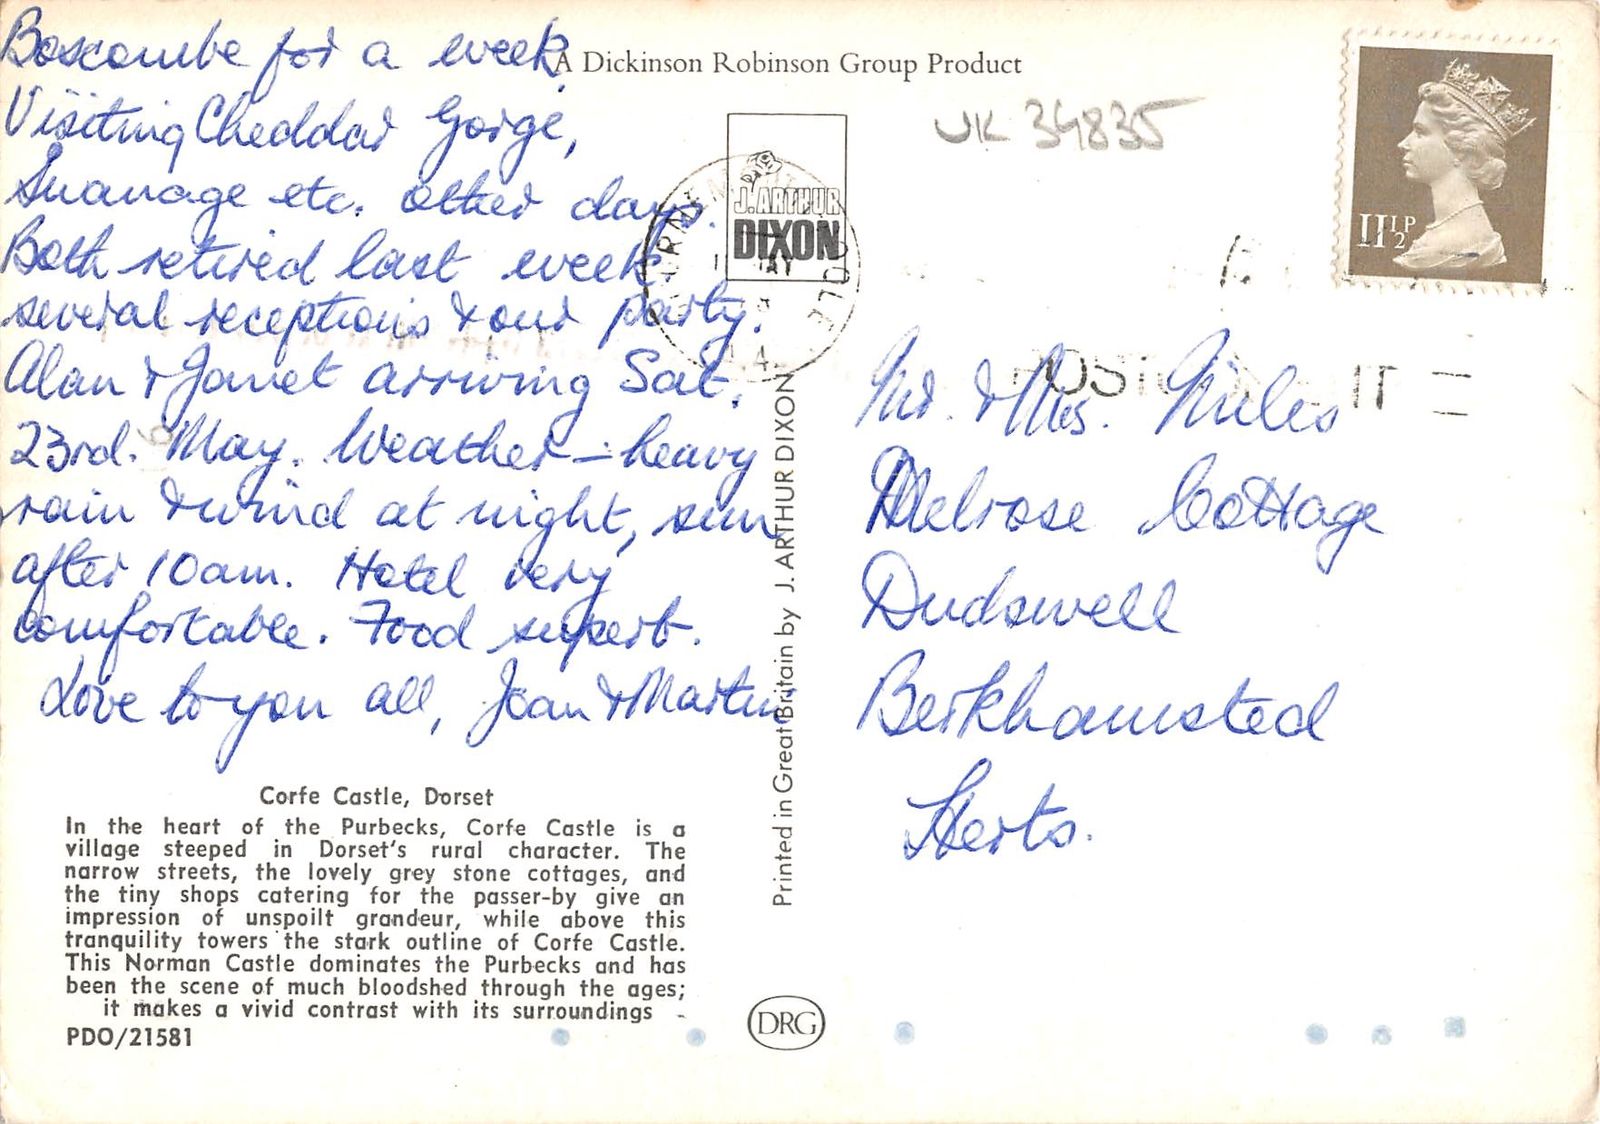 Boscombe for a week.
Visiting Cheddar Gorge,
Swanage etc. other days.
Both retired last week.
several receptions & our party.
Alan & Janet arriving Sat.
23rd. May. Weather – heavy
rain & wind at night, sun
after 10am. Hotel very
comfortable. Food superb.
Love to you all, Joan & Martin.
Corfe Castle, Dorset
In the heart of the Purbecks, Corfe Castle is a
village steeped in Dorset's rural character. The
narrow streets, the lovely grey stone cottages, and
the tiny shops catering for the passer-by give an
impression of unspoilt grandeur, while above this
tranquility towers the stark outline of Corfe Castle.
This Norman Castle dominates the Purbecks and has
been the scene of much bloodshed through the ages;
it makes a vivid contrast with its surroundings
PDO/21581
A Dickinson Robinson Group Product
J. ARTHUR
DIXON
Printed in Great Britain by J. ARTHUR DIXON
DRG
UK 34835
11½P
Mr. & Mrs. Miles
Melrose Cottage
Dudswell
Berkhamsted
Herts.